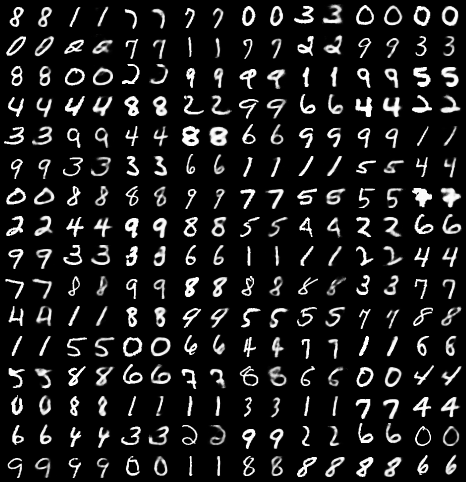 8 8 1 1 7 7 7 7 0 0 3 3 0 0 0 0
0 0 2 2 7 7 1 1 7 7 2 2 9 9 3 3
8 8 0 0 2 2 9 9 9 9 1 1 9 9 5 5
4 4 4 4 8 8 2 2 9 9 6 6 4 4 2 2
3 3 9 9 4 4 8 8 6 6 9 9 9 9 1 1
9 9 3 3 3 3 6 6 1 1 1 1 5 5 4 4
0 0 8 8 8 8 9 9 7 7 5 5 5 5 7 7
2 2 4 4 9 9 8 8 5 5 4 4 2 2 6 6
9 9 3 3 3 3 6 6 1 1 1 1 2 2 4 4
7 7 8 8 9 9 8 8 8 8 8 8 3 3 7 7
4 4 1 1 8 8 9 9 5 5 5 5 7 7 8 8
1 1 5 5 0 0 6 6 4 4 7 7 1 1 6 6
5 5 8 8 6 6 7 7 8 8 6 6 0 0 4 4
0 0 8 8 1 1 1 1 3 3 1 1 7 7 4 4
6 6 4 4 3 3 2 2 9 9 2 2 6 6 0 0
9 9 9 9 0 0 1 1 8 8 8 8 8 8 6 6